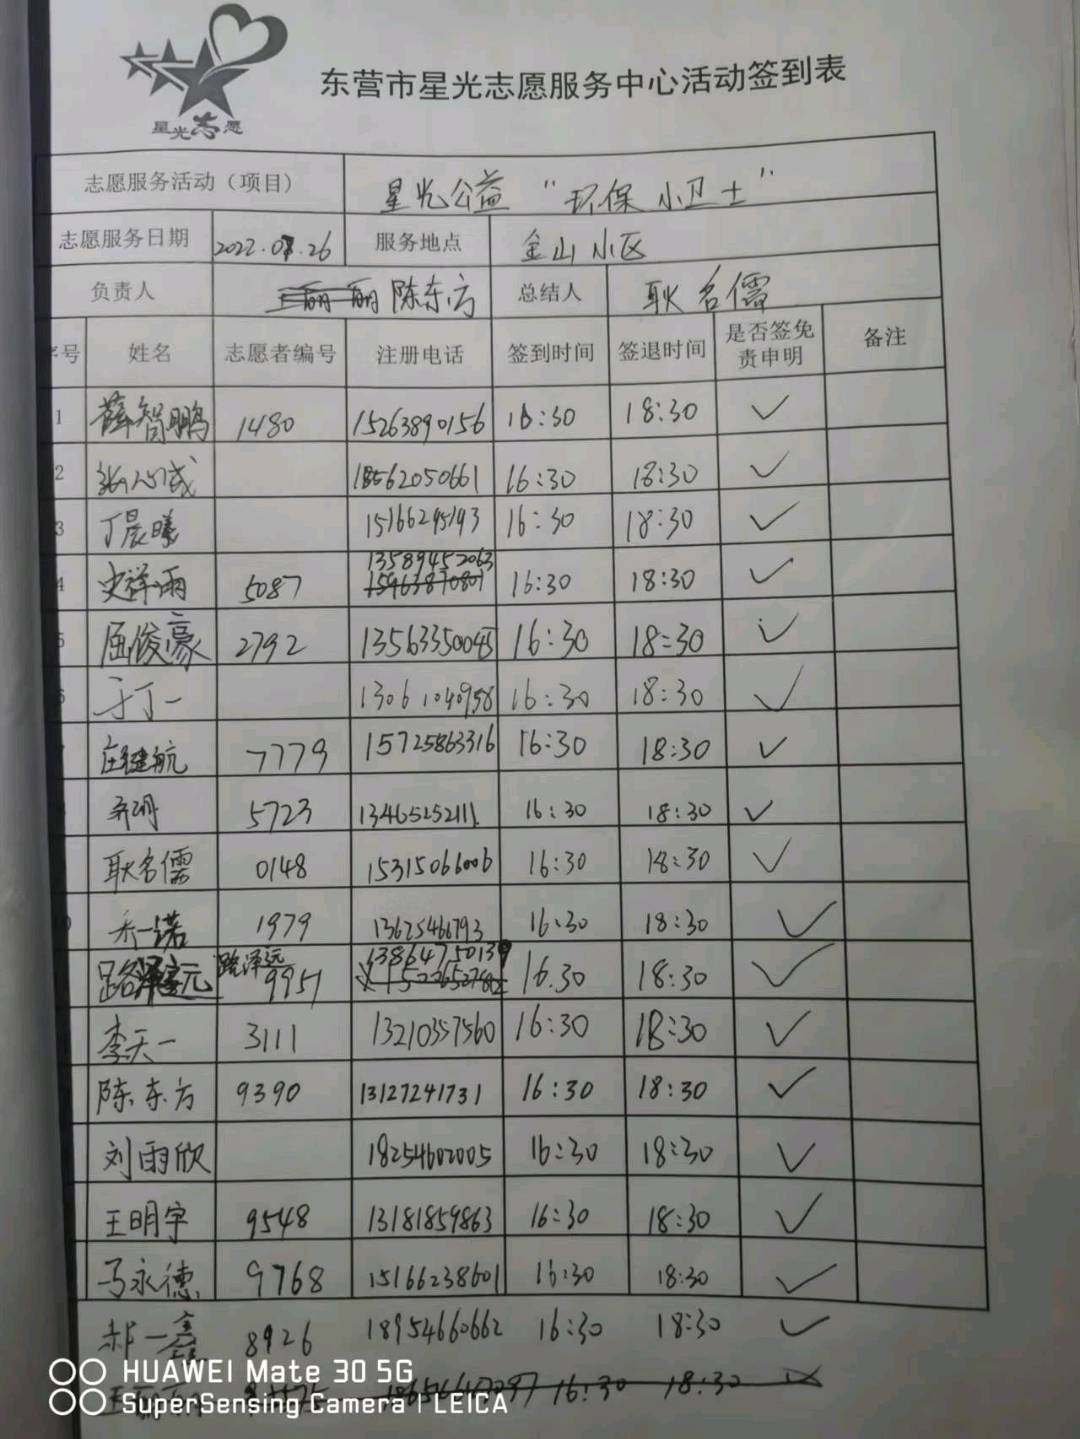 星光志愿
东营市星光志愿服务中心活动签到表
志愿服务活动（项目） 星光公益 “环保小卫士”
志愿服务日期 2022.07.26 服务地点 金山小区
负责人 王丽丽 陈东方 总结人 耿名儒
序号 姓名 志愿者编号 注册电话 签到时间 签退时间 是否签免责申明 备注
1 薛智鹏 1480 15263890156 16:30 18:30 ✓
2 张心成 18562050661 16:30 18:30 ✓
3 丁晨曦 15166295193 16:30 18:30 ✓
13589452063
4 史祥雨 5087 15963870801 16:30 18:30 ✓
5 屈俊豪 2792 13563350045 16:30 18:30 ✓
6 于丁一 13061040958 16:30 18:30 ✓
庄继航 7779 15725863316 16:30 18:30 ✓
5723 13465252111 16:30 18:30 ✓
耿名儒 0148 15315066006 16:30 18:30 ✓
一诺 1979 13625466793 16:30 18:30 ✓
路泽远 13864750139
路 元 9951 16:30 18:30 ✓
李天一 3111 13210357560 16:30 18:30 ✓
陈东方 9390 13127241731 16:30 18:30 ✓
刘雨欣 18254602005 16:30 18:30 ✓
王明宇 9548 13181859863 16:30 18:30 ✓
马永德 9768 15166238601 16:30 18:30 ✓
郝一鑫 8926 18954660662 16:30 18:30 ✓
王丽丽 16:30 18:30
HUAWEI Mate 30 5G
SuperSensing Camera | LEICA